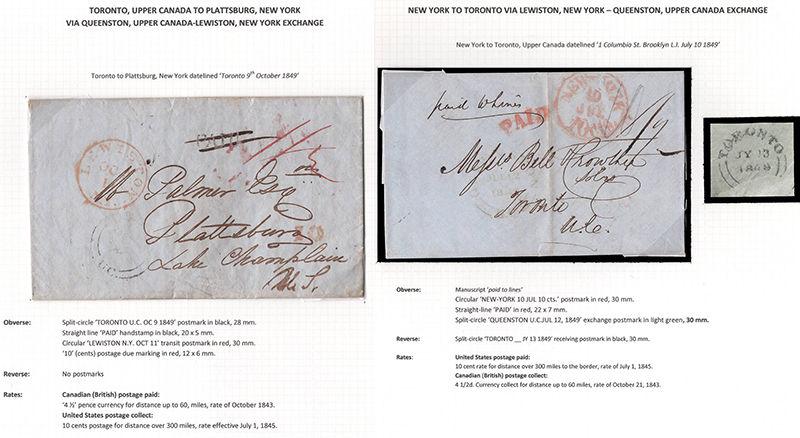 TORONTO, UPPER CANADA TO PLATTSBURG, NEW YORK
VIA QUEENSTON, UPPER CANADA-LEWISTON, NEW YORK EXCHANGE
Toronto to Plattsburg, New York datelined 'Toronto 9th October 1849'
PAID
LEWISTON
Palmer Esq
Plattsburg
Lake Champlain
U.S.
10
Obverse: Split-circle 'TORONTO U.C. OC 9 1849' postmark in black, 28 mm.
Straight line 'PAID' handstamp in black, 20 x 5 mm.
Circular 'LEWISTON N.Y. OCT 11' transit postmark in red, 30 mm.
'10' (cents) postage due marking in red, 12 x 6 mm.
Reverse: No postmarks
Rates: Canadian (British) postage paid:
'4 ½' pence currency for distance up to 60, miles, rate of October 1843.
United States postage collect:
10 cents postage for distance over 300 miles, rate effective July 1, 1845.
NEW YORK TO TORONTO VIA LEWISTON, NEW YORK – QUEENSTON, UPPER CANADA EXCHANGE
New York to Toronto, Upper Canada datelined '1 Columbia St. Brooklyn L.I. July 10 1849'
paid
PAID
NEW-YORK
10
JUL
Messrs Bell
Toronto
U.C.
TORONTO
JY 13
Obverse: Manuscript 'paid to lines'
Circular 'NEW-YORK 10 JUL 10 cts.' postmark in red, 30 mm.
Straight-line 'PAID' in red, 22 x 7 mm.
Split-circle 'QUEENSTON U.C.JUL 12, 1849' exchange postmark in light green, 30 mm.
Reverse: Split-circle 'TORONTO __ JY 13 1849' receiving postmark in black, 30 mm.
Rates: United States postage paid:
10 cent rate for distance over 300 miles to the border, rate of July 1, 1845.
Canadian (British) postage collect:
4 1/2d. Currency collect for distance up to 60 miles, rate of October 21, 1843.